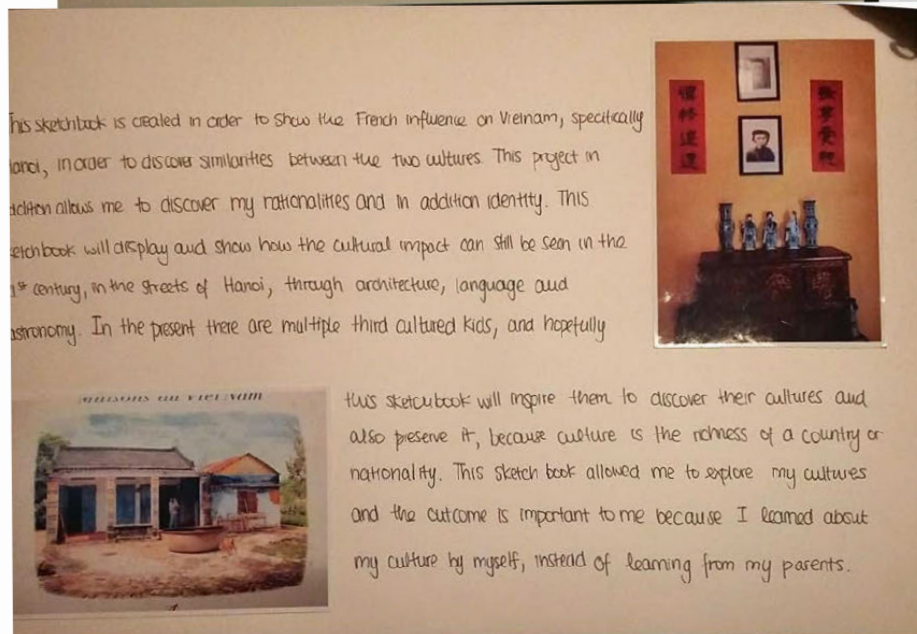 his sketchbook is created in order to show the French influence on Vietnam, specifically
anoi, in order to discover similarities between the two cultures. This project in
ddition allows me to discover my nationalities and in addition identity. This
etchbook will display and show how the cultural impact can still be seen in the
1st century, in the streets of Hanoi, through architecture, language and
astronomy. In the present there are multiple third cultured kids, and hopefully
this sketchbook will inspire them to discover their cultures and
also preserve it, because culture is the richness of a country or
nationality. This sketch book allowed me to explore my cultures
and the outcome is important to me because I learned about
my culture by myself, instead of learning from my parents.